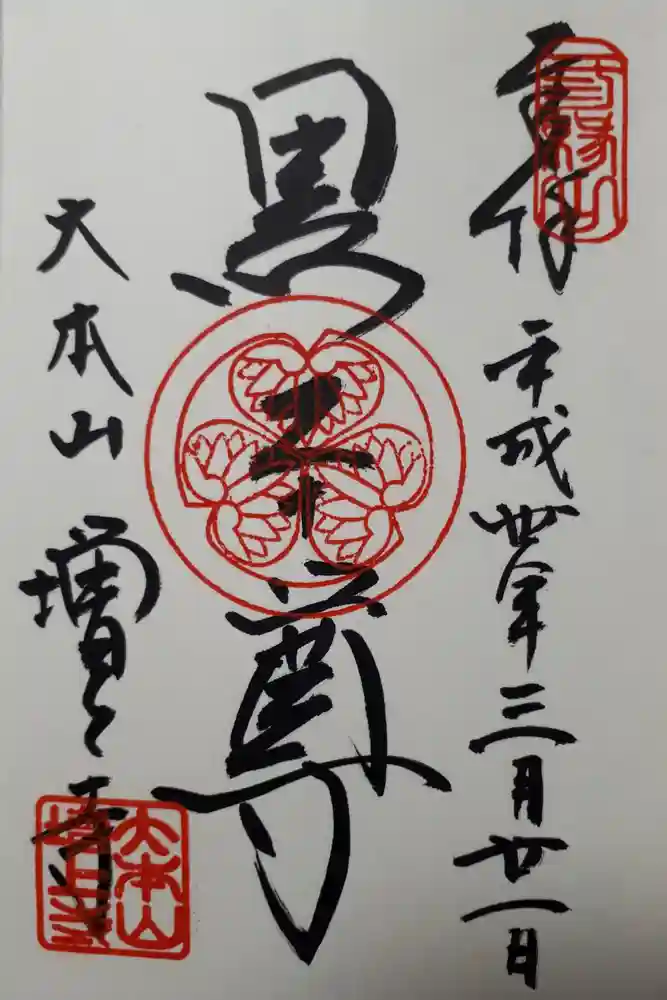 奉拝
三縁山
平成丗年三月廿一日
黒本尊
大本山 増上寺
大本山
増上寺